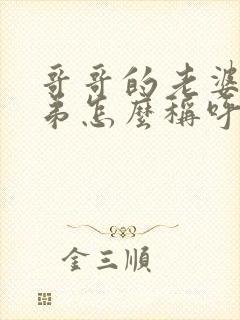 哥哥的老婆
弟怎麼稱呼
金三順